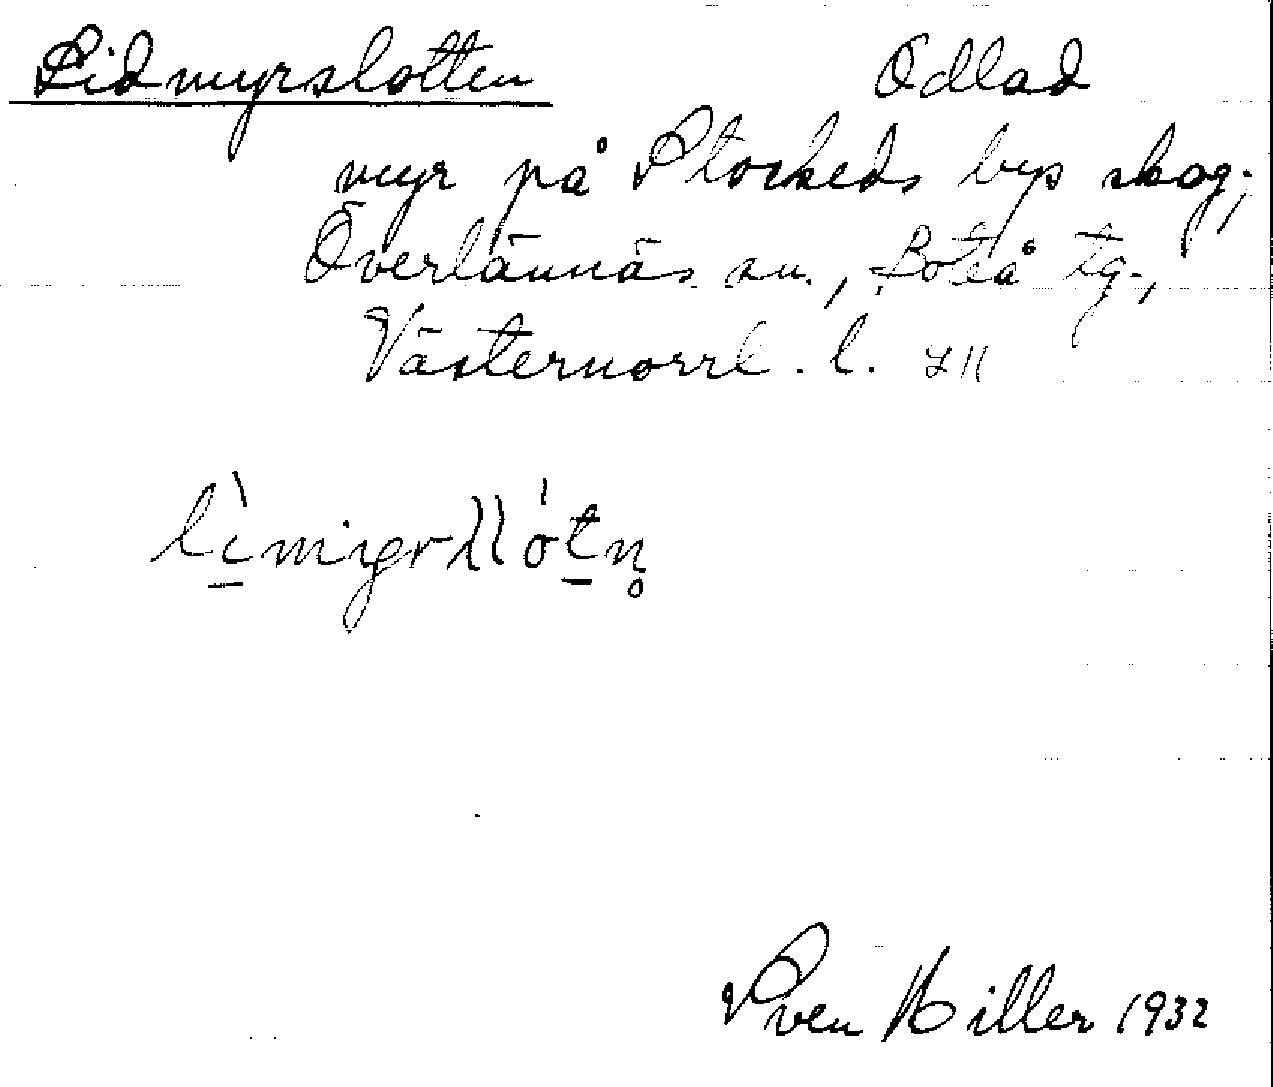 Lidmyrslotten Odlad
myr på Stockeds bys skog;
Överlännäs sn., Boteå tg.,
Västernorrl. l.
Sven Hiller 1932